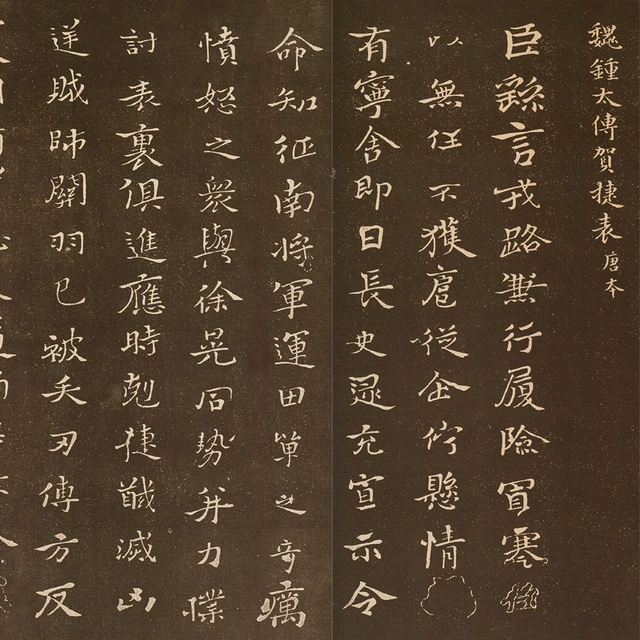 魏鍾太傅賀捷表 唐本
臣繇言戎路兼行履險冒寒
以無任不獲扈從企佇懸情
有寧舍即日長史逯充宣示令
命知征南將軍運田單之奇厲
憤怒之衆與徐晃同勢并力撲
討表裏俱進應時剋捷馘滅凶
逆賊帥關羽已被矢刃傅方反